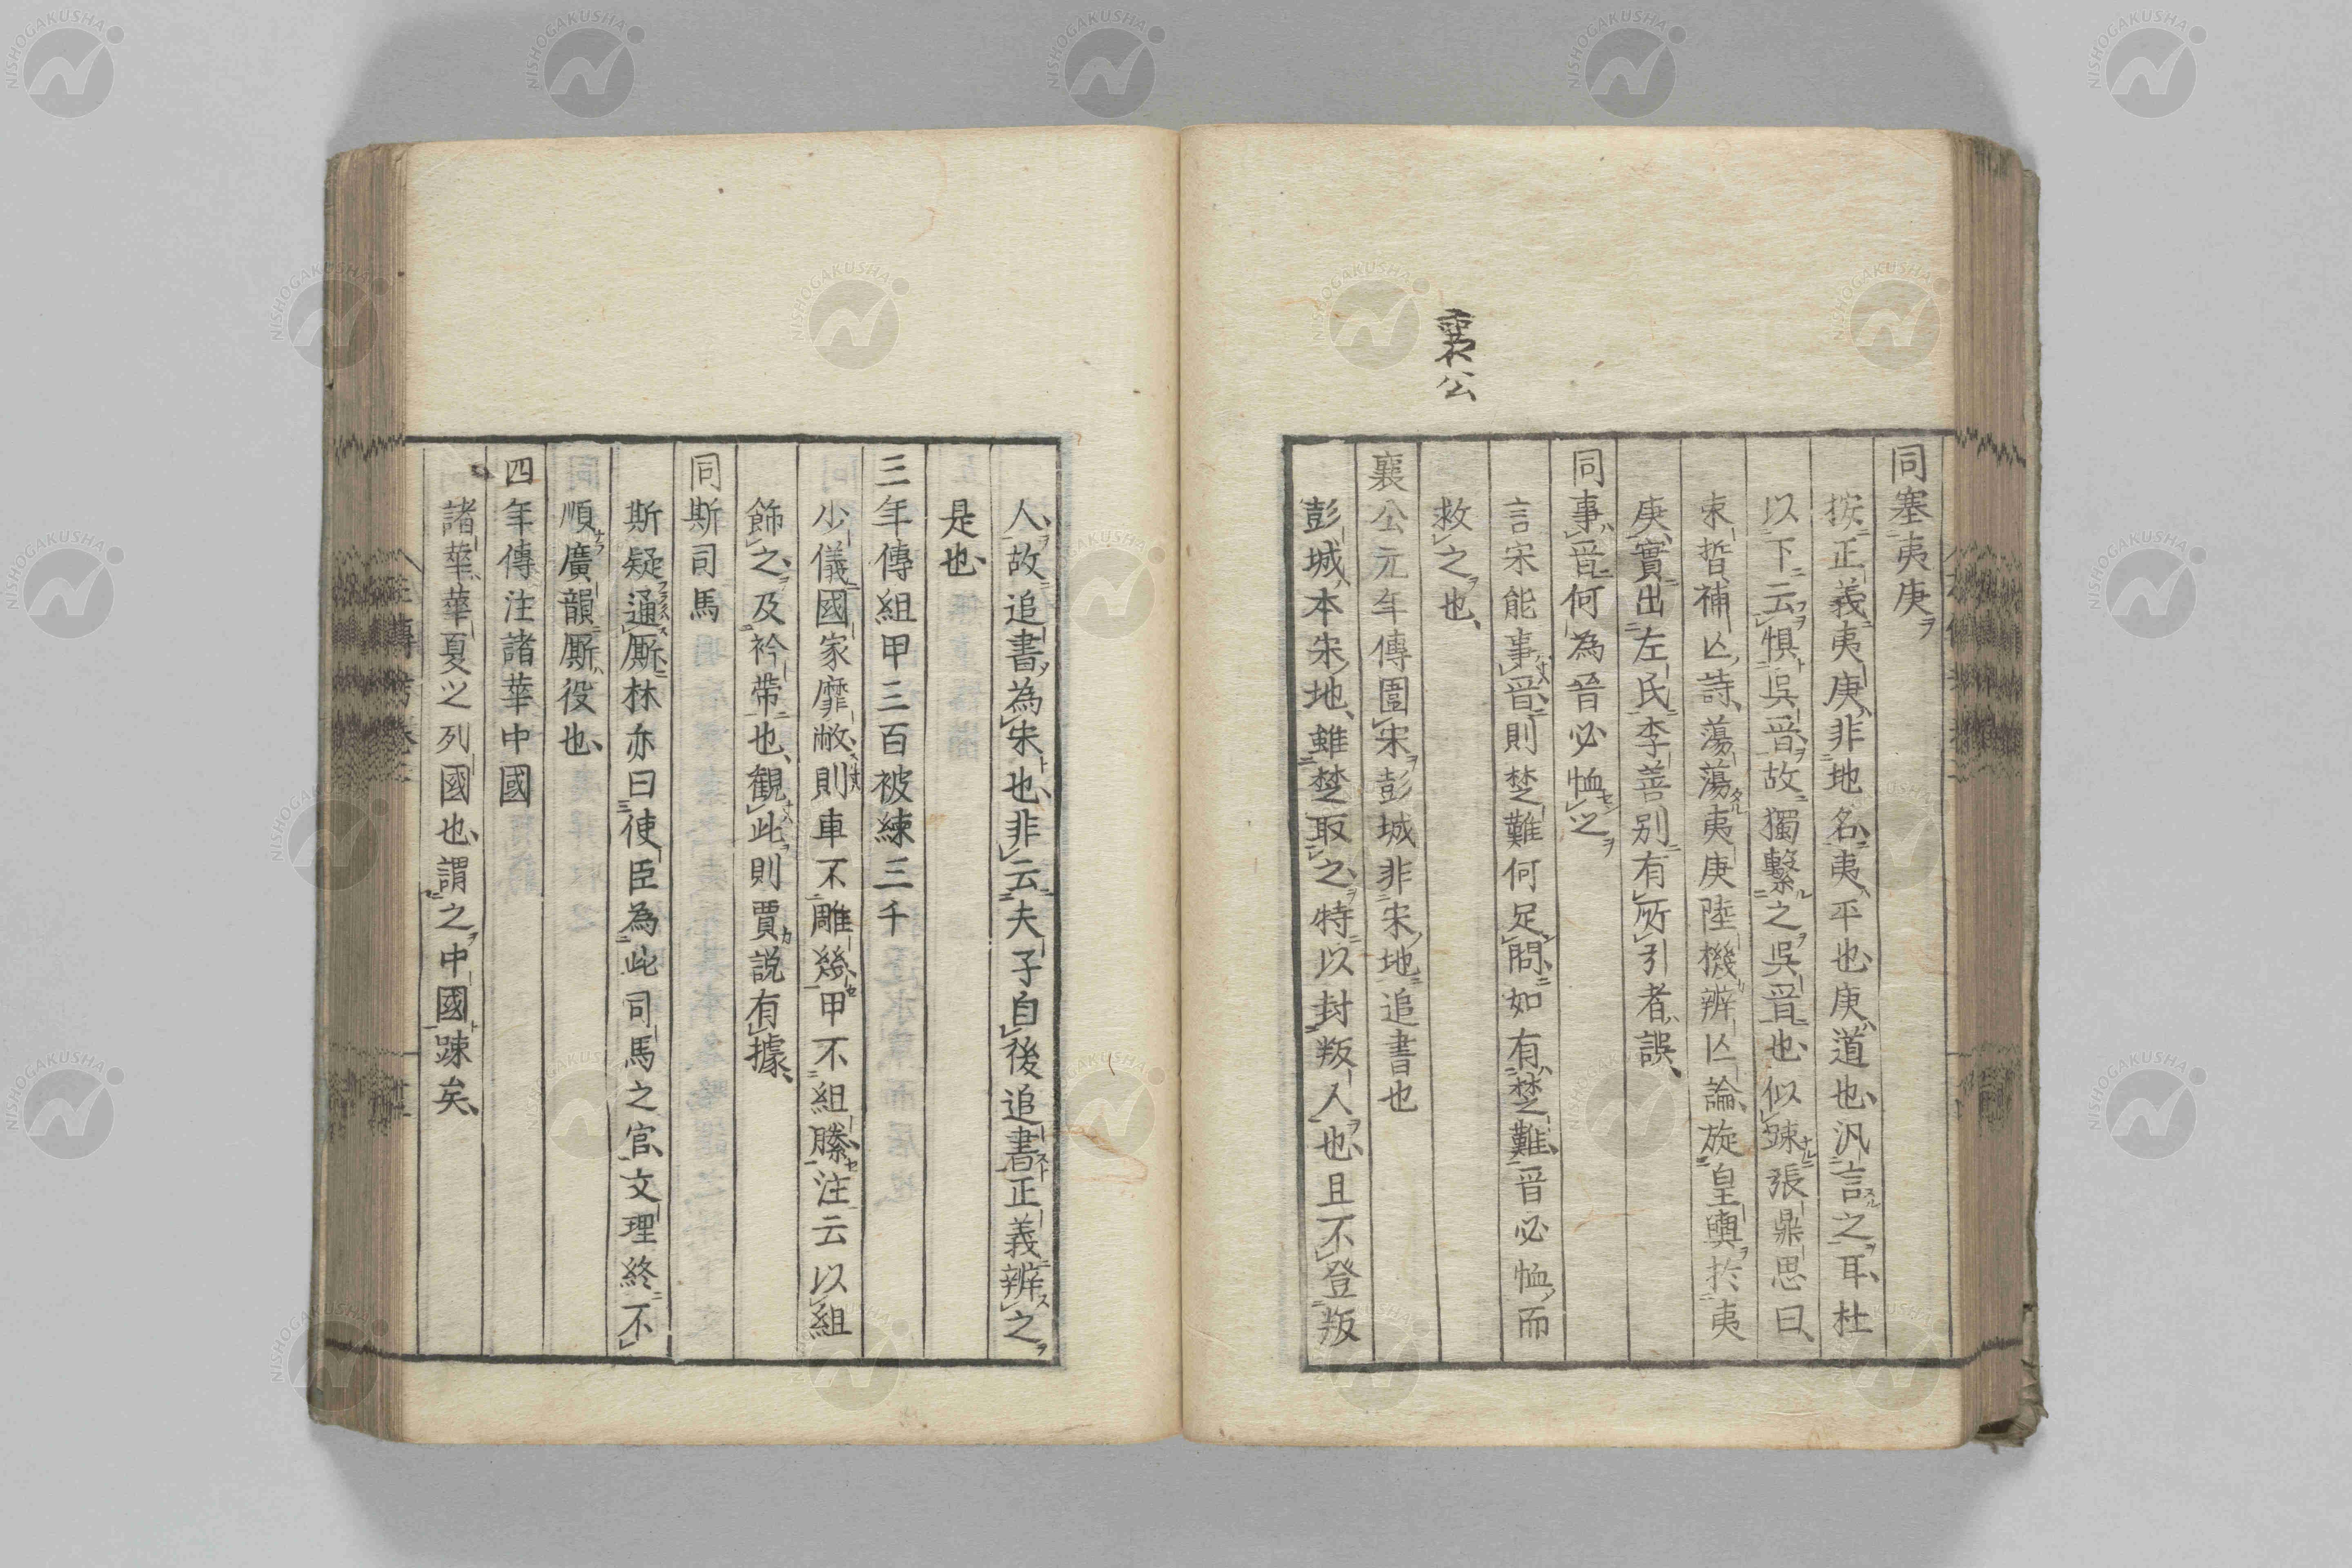 襄公
同塞夷庚ヲ
按正義夷庚非地名夷平也庚道也汎言之耳杜
以下云惧吳晉故獨繫之吳晉也似踈張鼎思曰
束晳補亾詩蕩蕩夷庚陸機辨亾論旋皇輿於夷
庚實出左氏李善別有所引者誤
同事晉何為晉必恤之
言宋能事晉則楚難何足問如有楚難晉必恤而
救之也
襄公元年傳圍宋彭城非宋地追書也
彭城本宋地雖楚取之特以封叛人也且不登叛
人故追書為宋也非云夫子自後追書正義辨之
是也
三年傳組甲三百被練三千
少儀國家靡敝則車不雕幾甲不組縢注云以組
飾之及衿帶也観此則賈説有據
同斯司馬
斯疑通厮林亦曰使臣為此司馬之官文理終不
順廣韻厮役也
四年傳注諸華中國
諸華華夏之列國也謂之中國踈矣
NISHOGAKUSHA